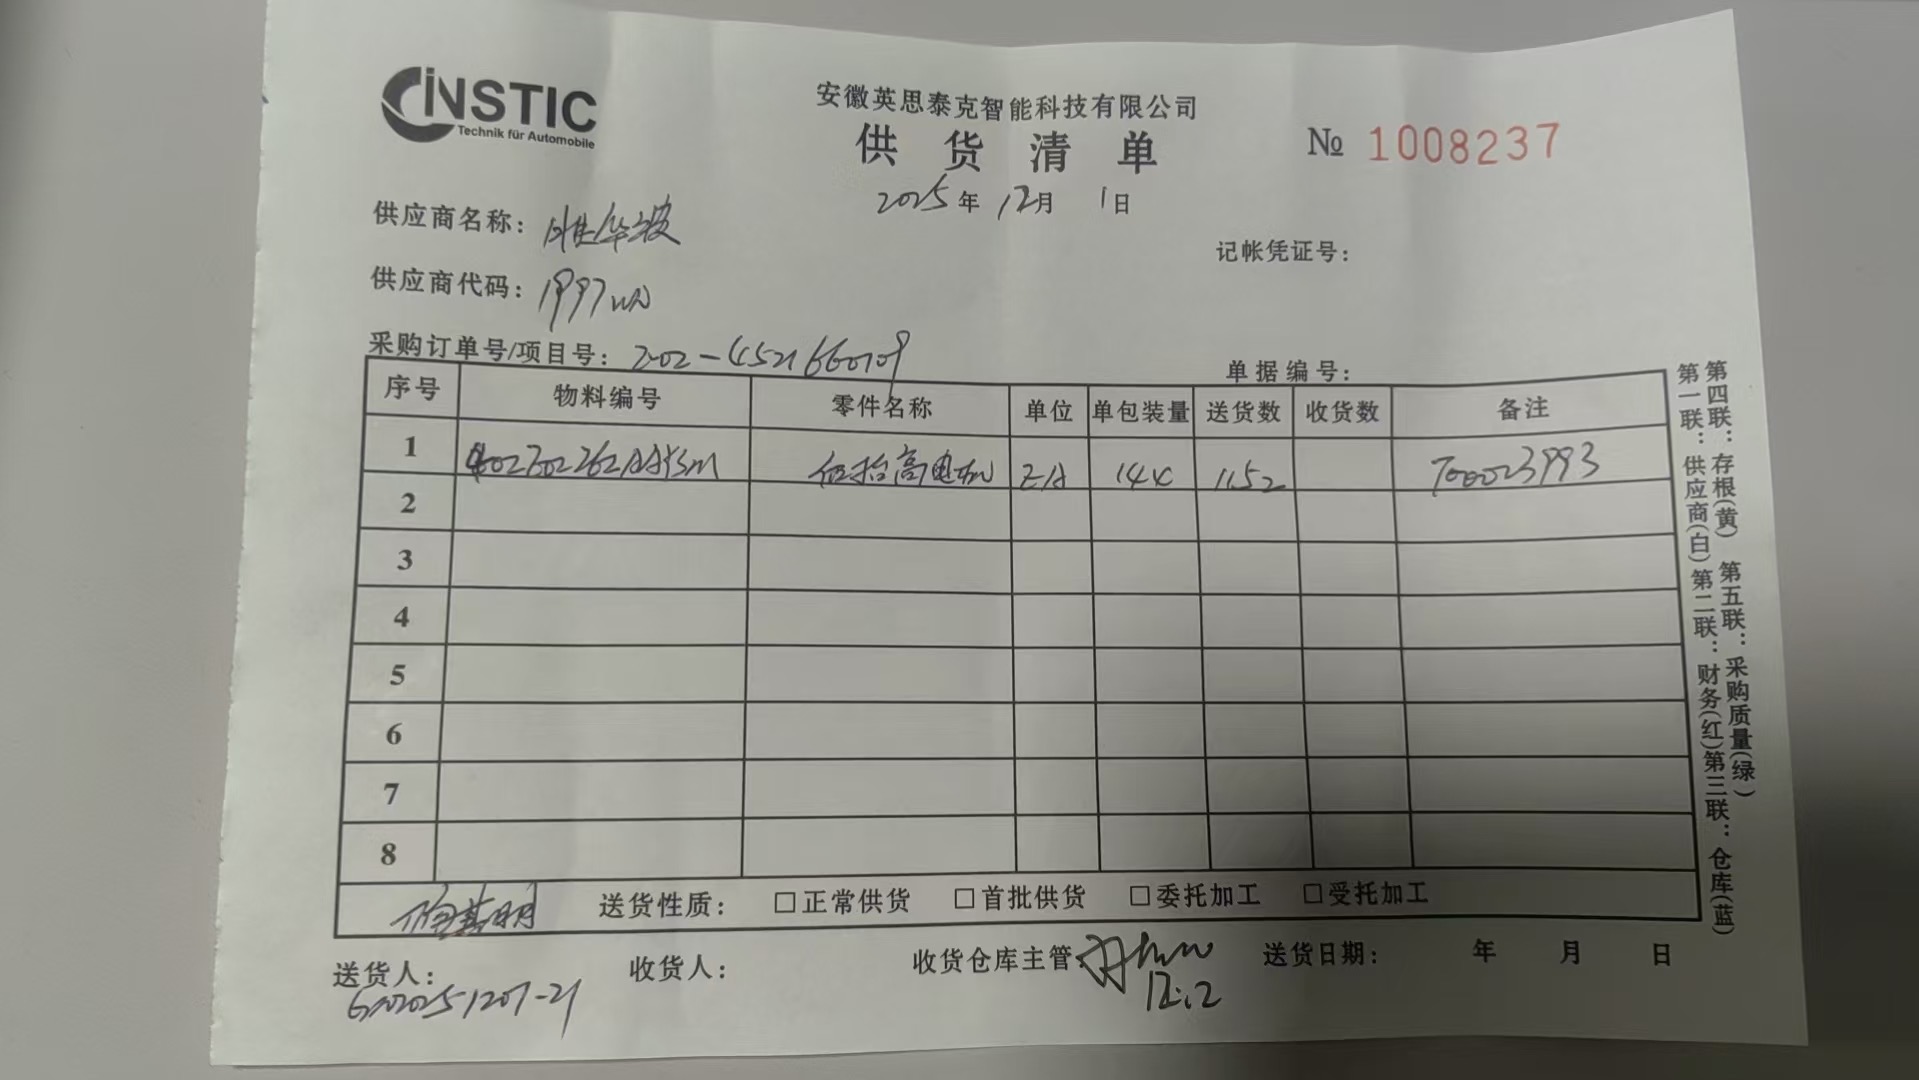 INSTIC
Technik für Automobile
安徽英思泰克智能科技有限公司
供货清单
№ 1008237
2025年 12月 1日
供应商名称:
记帐凭证号:
供应商代码: 1997
采购订单号/项目号: 202-4521660109
单据编号:
序号 物料编号 零件名称 单位 单包装量 送货数 收货数 备注
1 高电机 EA 144 1152 T00023993
2
3
4
5
6
7
8
送货性质: □正常供货 □首批供货 □委托加工 □受托加工
送货人: 收货人: 收货仓库主管: 送货日期: 年 月 日
12.12
第一联:供应商(白)第二联:财务(红)第三联:仓库(蓝)
第四联:存根(黄) 第五联:采购质量(绿)